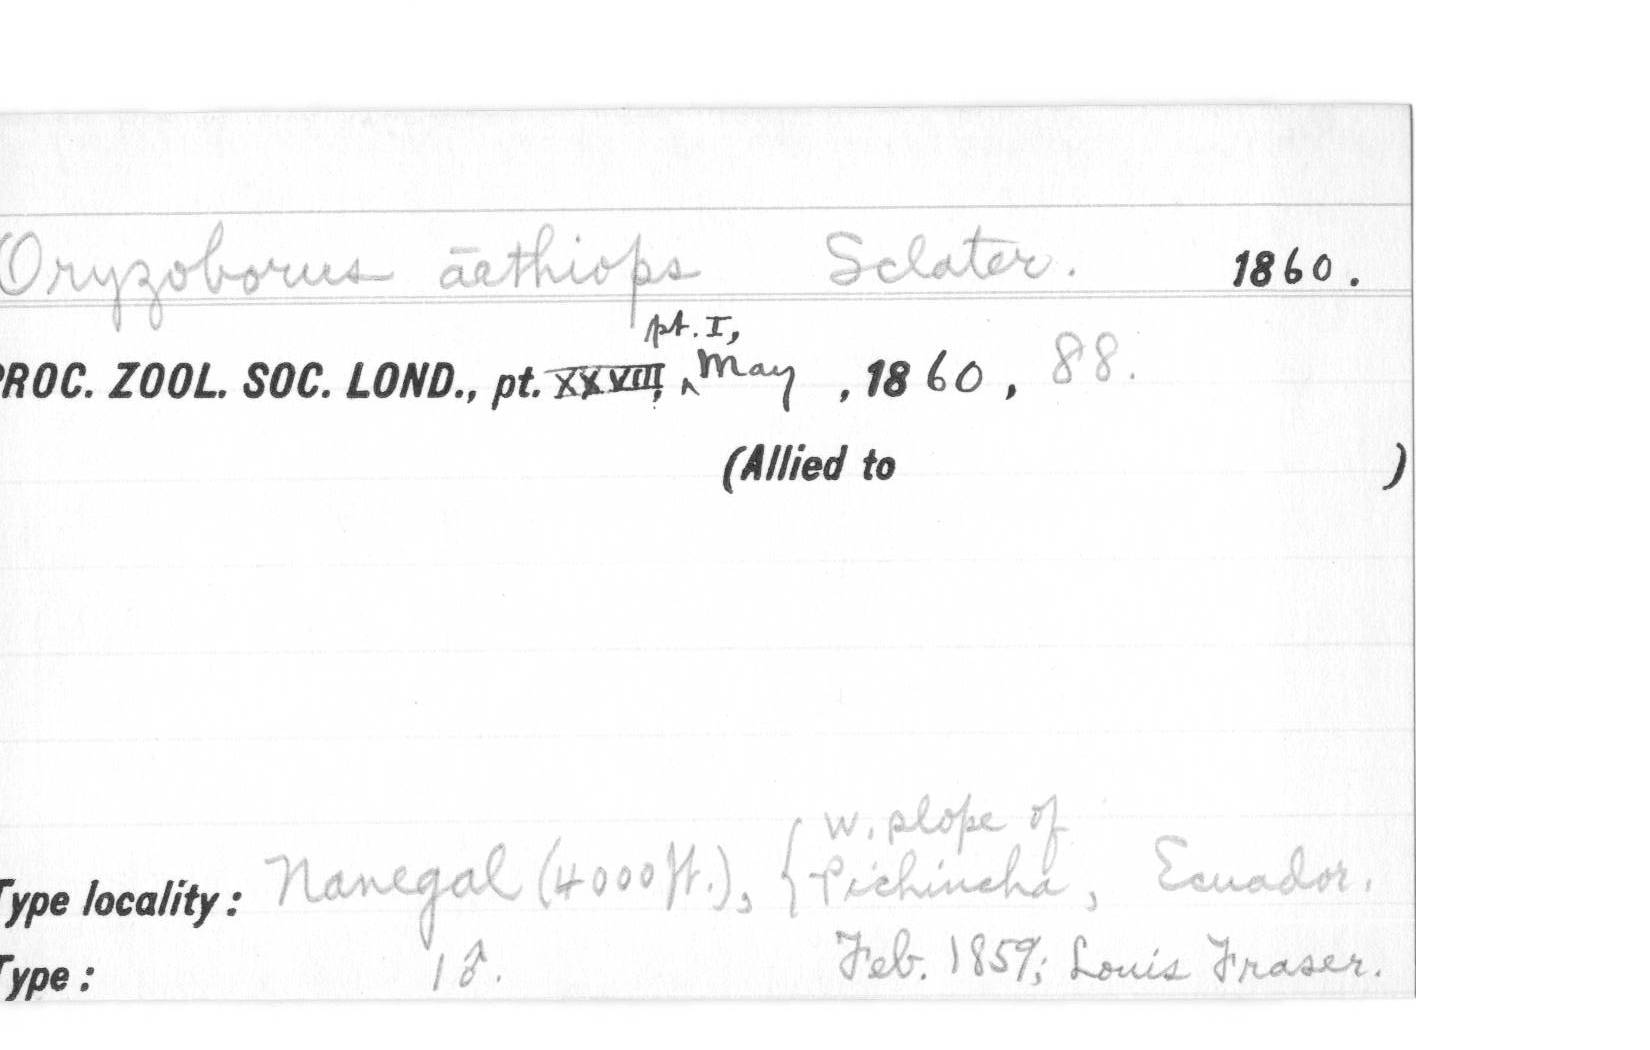 Oryzoborus āethiops Sclater. 1860.
pt. I,
PROC. ZOOL. SOC. LOND., pt. XXVIII, ^ May , 1860 , 88.
(Allied to )
w. slope of
Type locality: Nanegal (4000 ft.), { Pichincha, Ecuador.
Type: 1♂. Feb. 1859; Louis Fraser.